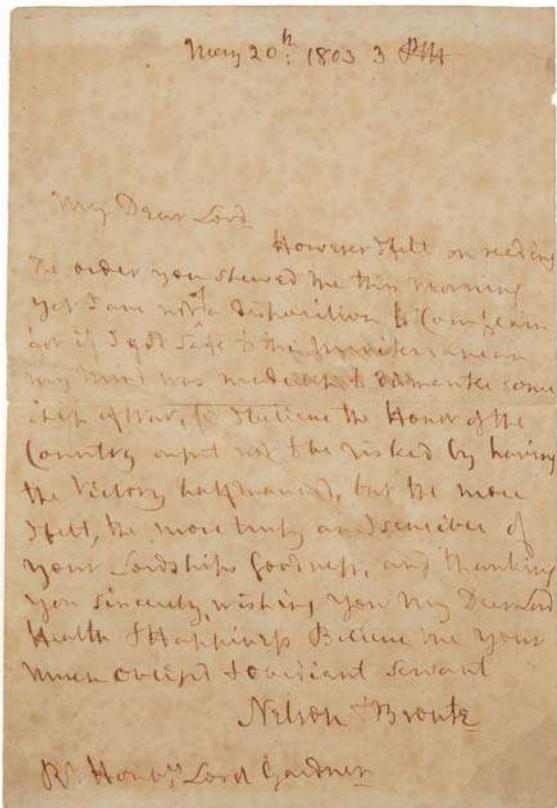 May 20th: 1803 3 PM
My Dear Lord
However I felt on reading
the order you shewed me this morning
yet I am not of a disposition to
for if I got safe to the Mediterranean
my mind was made up to dismantle some
ship of War, for I believe the Honor of the
Country ought not to be risked by having
the Victory half manned, but the more
I felt, the more truly am I sensible of
your Lordships Goodness, and thanking
you sincerely, wishing you My Dear Lord
Health & Happiness Believe me your
much obliged & obedient servant
Nelson & Bronte
Rt. Honble. Lord Gardner